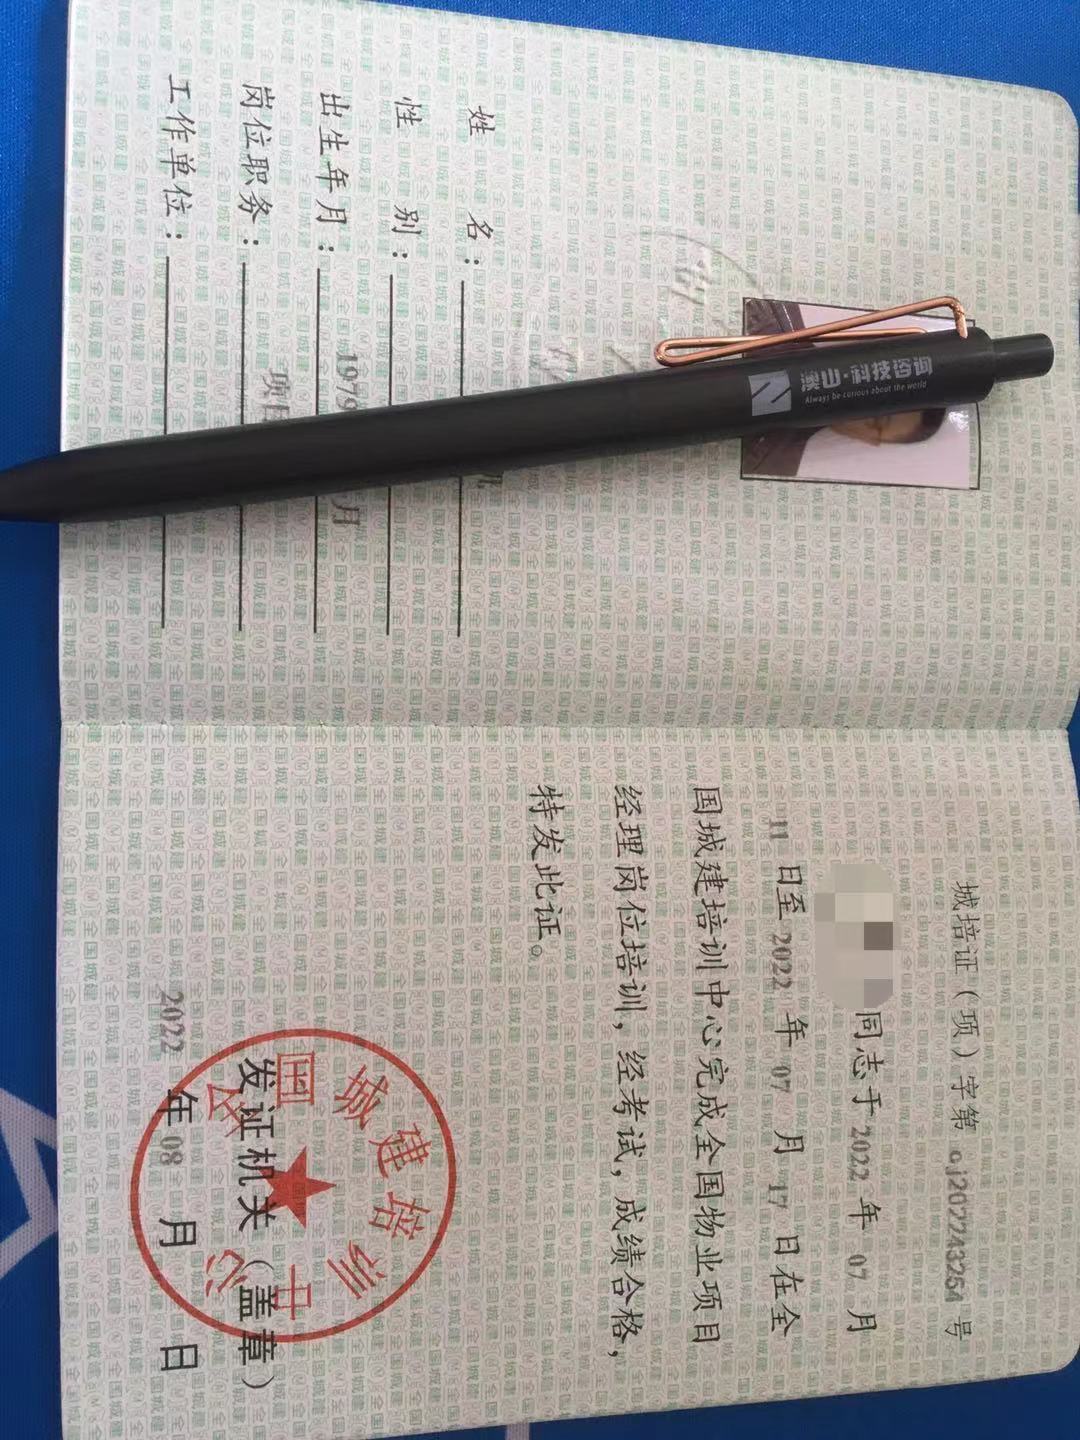 姓 名：
性 别：
出生年月：1979 月
岗位职务：项目
工作单位：
澳山·科技咨询
Always be curious about the world
城培证（项）字第 cj202243254 号
同志于2022 年 07 月
11 日至 2022 年 07 月 17 日在全
国城建培训中心完成全国物业项目
经理岗位培训，经考试，成绩合格，
特发此证。
全国城建培训中心
发证机关（盖章）
2022 年 08 月 日